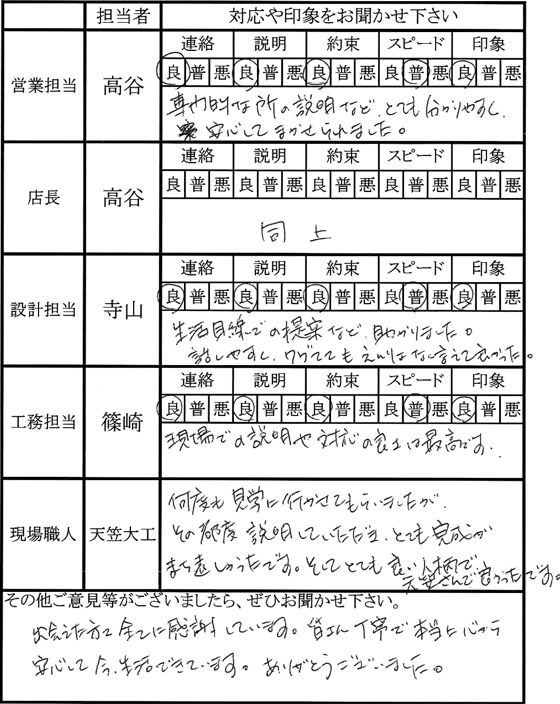 担当者 対応や印象をお聞かせ下さい
営業担当 高谷
連絡 説明 約束 スピード 印象
良 普 悪 良 普 悪 良 普 悪 良 普 悪 良 普 悪
専門的な所の説明など、とても分かりやすく、
安心してまかせられました。
店長 高谷
連絡 説明 約束 スピード 印象
良 普 悪 良 普 悪 良 普 悪 良 普 悪 良 普 悪
同上
設計担当 寺山
連絡 説明 約束 スピード 印象
良 普 悪 良 普 悪 良 普 悪 良 普 悪 良 普 悪
生活目線での提案など、助かりました。
話しやすく、言えて良かった。
工務担当 篠崎
連絡 説明 約束 スピード 印象
良 普 悪 良 普 悪 良 普 悪 良 普 悪 良 普 悪
現場での説明や対応の良さは最高です。
現場職人 天笠大工
何度も見学に行かせてもらいましたが、
その都度説明していただき、とても完成が
まち遠しかったです。そしてとても良い人柄で
天笠さんで良かったです。
その他ご意見等がございましたら、ぜひお聞かせ下さい。
出会えた方全てに感謝しています。皆さん丁寧で本当に心から
安心して今、生活できています。ありがとうございました。